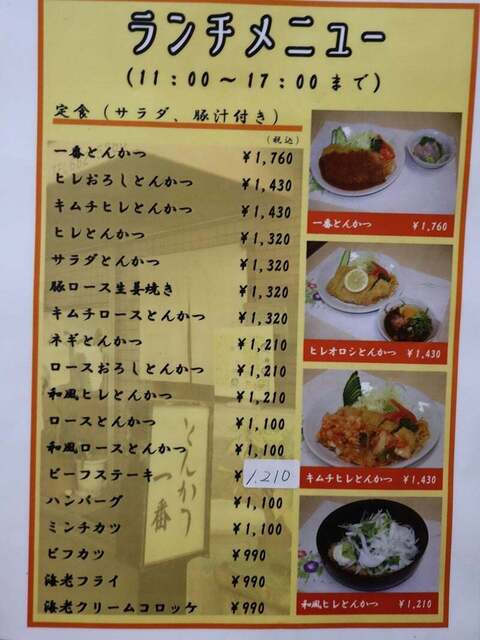 ランチメニュー
(11：00～17：00まで)
定食（サラダ、豚汁付き）
(税込)
一番とんかつ ￥1,760
ヒレおろしとんかつ ￥1,430
キムチヒレとんかつ ￥1,430
ヒレとんかつ ￥1,320
サラダとんかつ ￥1,320
豚ロース生姜焼き ￥1,320
キムチロースとんかつ ￥1,320
ネギとんかつ ￥1,210
ロースおろしとんかつ ￥1,210
和風ヒレとんかつ ￥1,210
ロースとんかつ ￥1,100
和風ロースとんかつ ￥1,100
ビーフステーキ ￥1,210
ハンバーグ ￥1,100
ミンチカツ ￥1,100
ビフカツ ￥990
海老フライ ￥990
海老クリームコロッケ ￥990
一番とんかつ ￥1,760
ヒレオロシとんかつ ￥1,430
キムチヒレとんかつ ￥1,430
和風ヒレとんかつ ￥1,210
とんかつ
一番